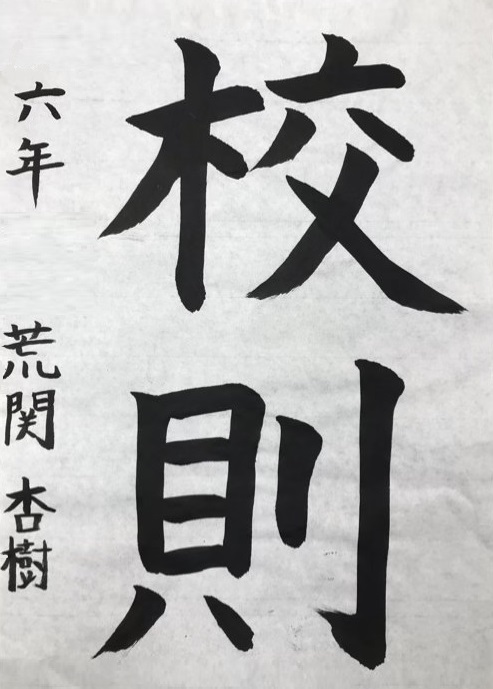 校則
六年 荒関 杏樹